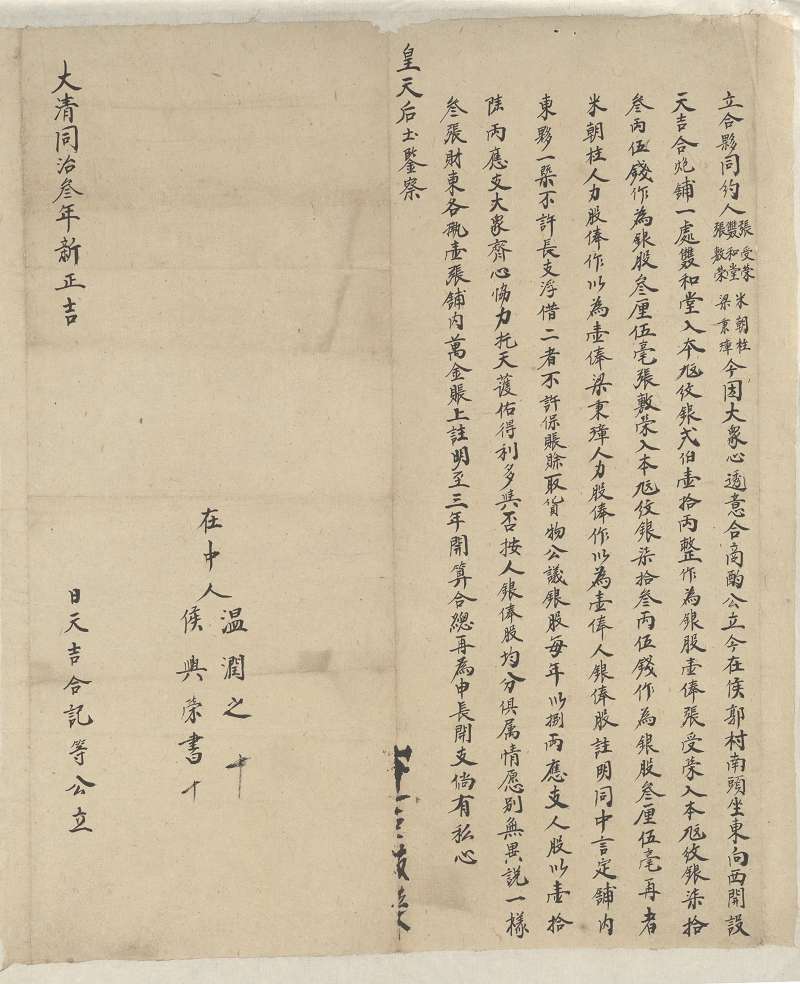 立合夥同約人張受榮雙和堂張敷榮米朝柱梁秉璋今因大眾心透意合商酌公立今在侯郭村南頭坐東向西開設
天吉合炮鋪一處雙和堂入本紋銀弍伯壹拾兩整作為銀股壹俸張受榮入本紋銀柒拾
叁兩伍錢作為銀股叁厘伍毫張敷榮入本紋銀柒拾叁兩伍錢作為銀股叁厘伍毫再者
米朝柱人力股俸作以為壹俸梁秉璋人力股俸作以為壹俸人銀俸股註明同中言定鋪內
東夥一槩不許長支浮借二者不許保賬賒取貨物公議銀股每年以捌兩應支人股以壹拾
陸兩應支大眾齊心恊力托天護佑得利多與否按人銀俸股均分俱属情愿別無異說一樣
叁張財東各執壹張鋪內萬金賬上註明至三年開算合總再為申長開支倘有私心
皇天后土鑒察
在中人
温潤之 十
侯興榮書 十
大清同治叁年新正吉
日天吉合記等公立